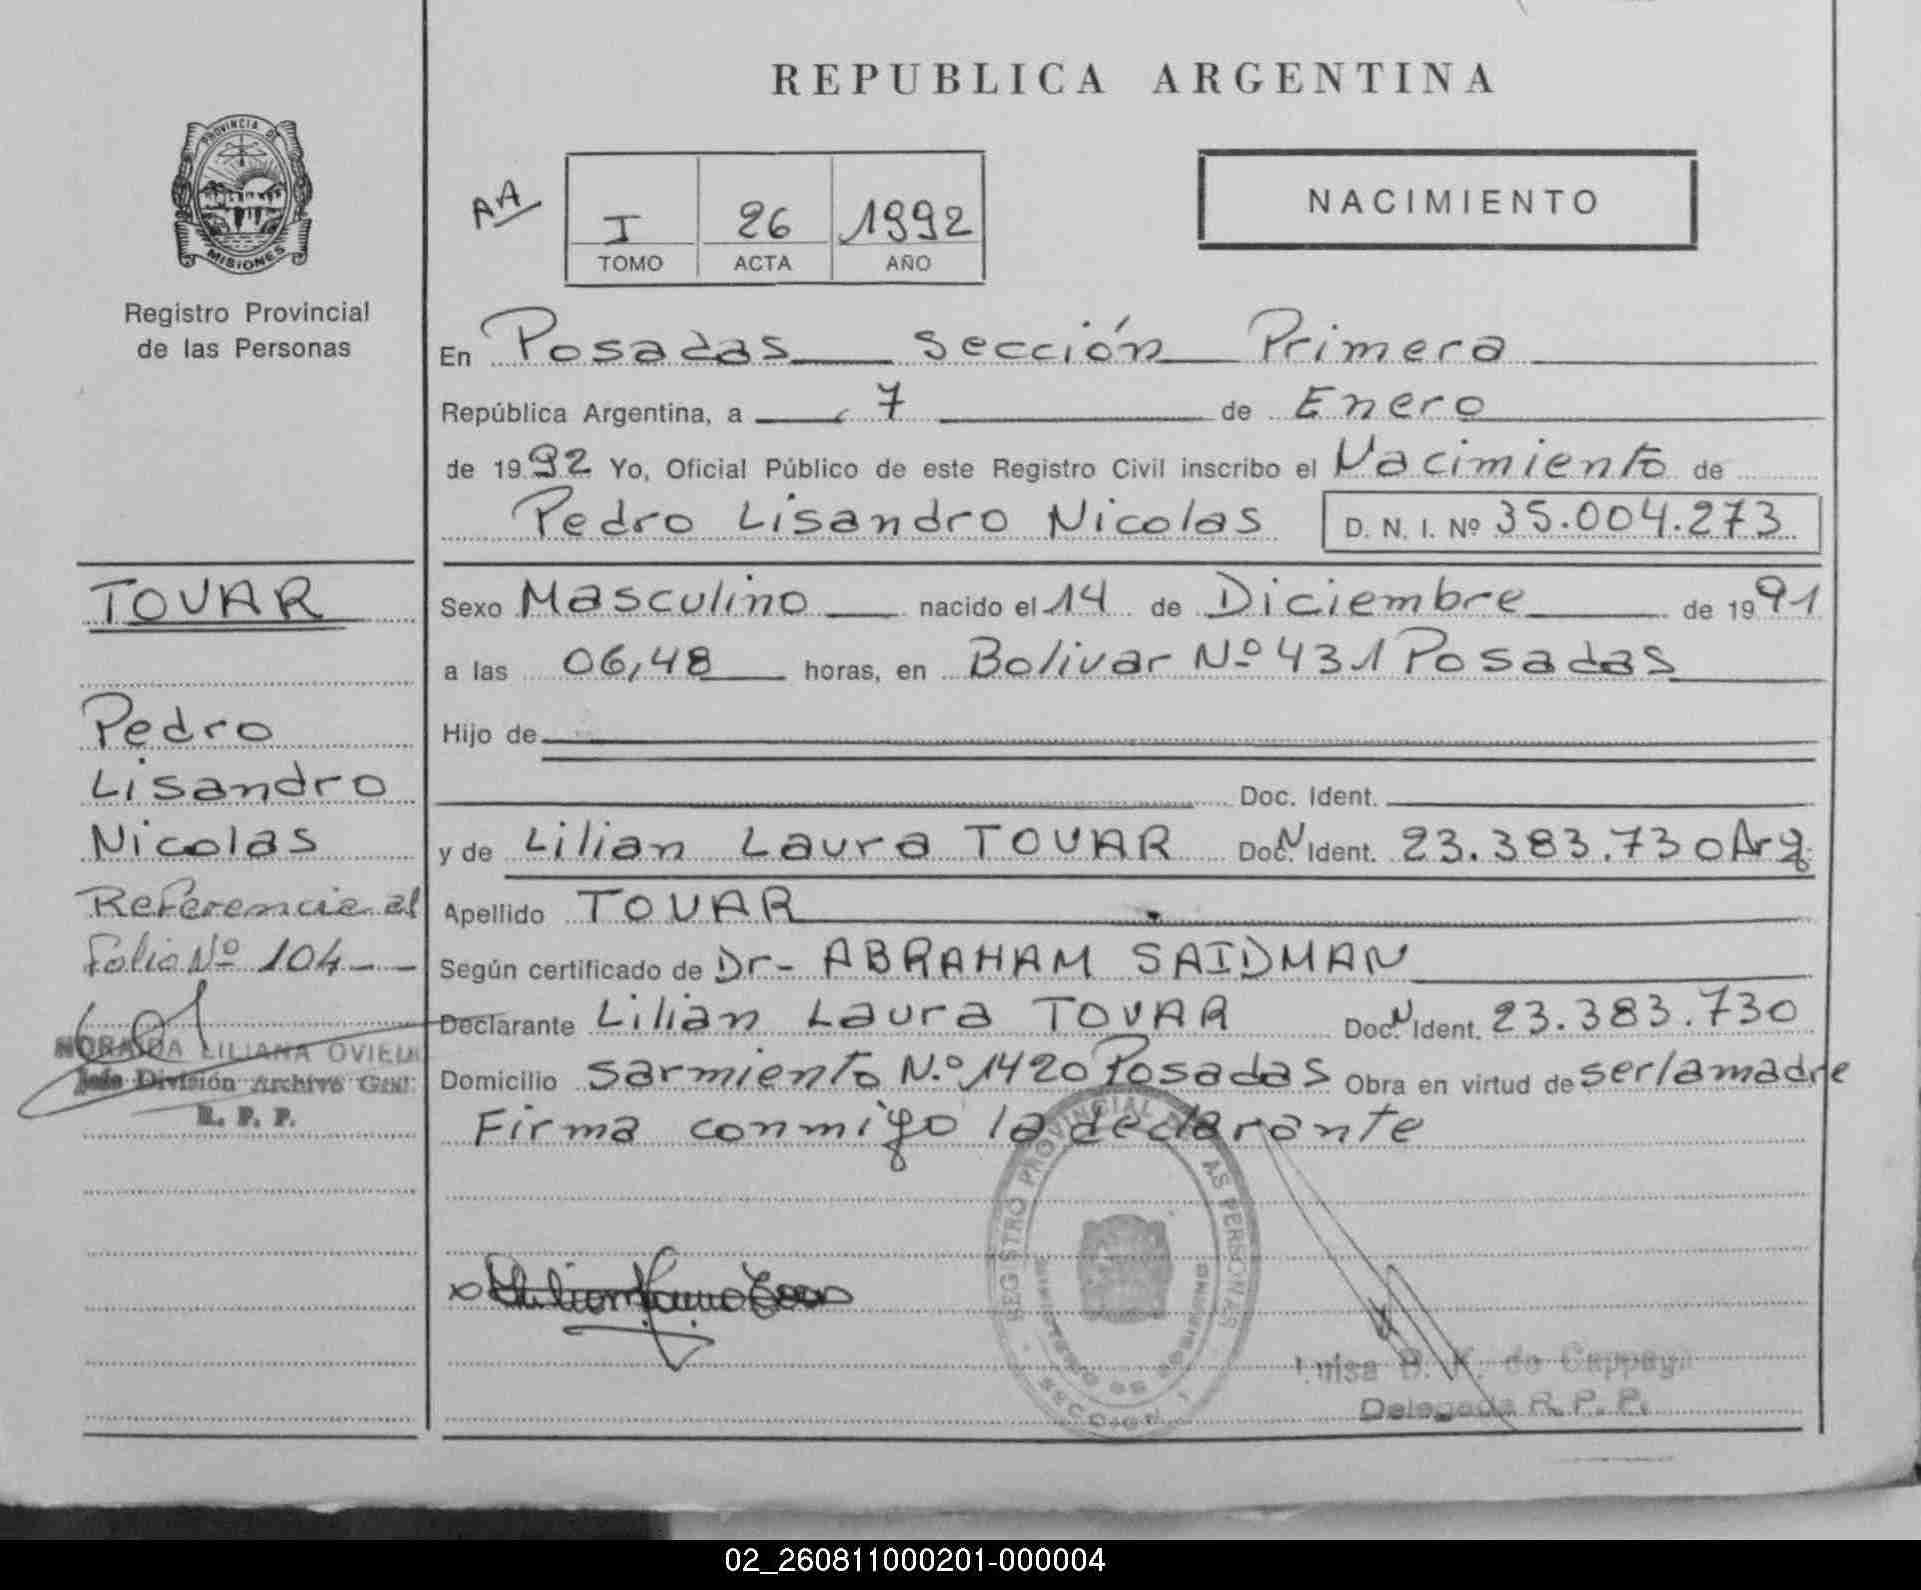 REPUBLICA ARGENTINA
PROVINCIA DE
MISIONES
Registro Provincial
de las Personas
AA
I 26 1992
TOMO ACTA AÑO
NACIMIENTO
En Posadas sección Primera
República Argentina, a 7 de Enero
de 1992 Yo, Oficial Público de este Registro Civil inscribo el Nacimiento de
Pedro Lisandro Nicolas D. N. I. Nº 35.004.273
TOVAR
Pedro
Lisandro
Nicolas
Referencia al
Folio Nº 104
NORAIDA LILIANA OVIEDO
Jefe División Archivo Gral.
R. P. P.
Sexo Masculino nacido el 14 de Diciembre de 1991
a las 06,48 horas, en Bolivar Nº 431 Posadas
Hijo de
Doc. Ident.
y de Lilian Laura TOVAR Doc. N Ident. 23.383.730 Arg.
Apellido TOVAR
Según certificado de Dr- ABRAHAM SAIDMAN
Declarante Lilian Laura TOVAR Doc. N Ident. 23.383.730
Domicilio Sarmiento N.º 1420 Posadas Obra en virtud de ser la madre
Firma conmigo la declarante
REGISTRO PROVINCIAL DE LAS PERSONAS
MINISTERIO DE GOBIERNO
SECCION 1
Luisa B. K. de
Delegada R. P. P.
02_260811000201-000004